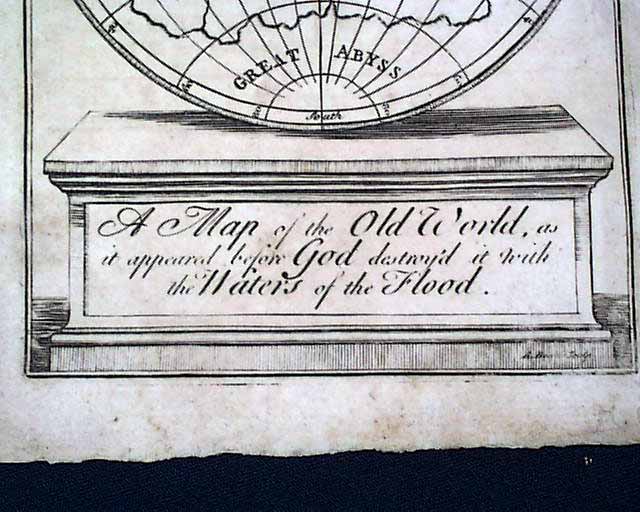 GREAT ABYSS
South
A Map of the Old World, as
it appeared before God destroy'd it with
the Waters of the Flood.